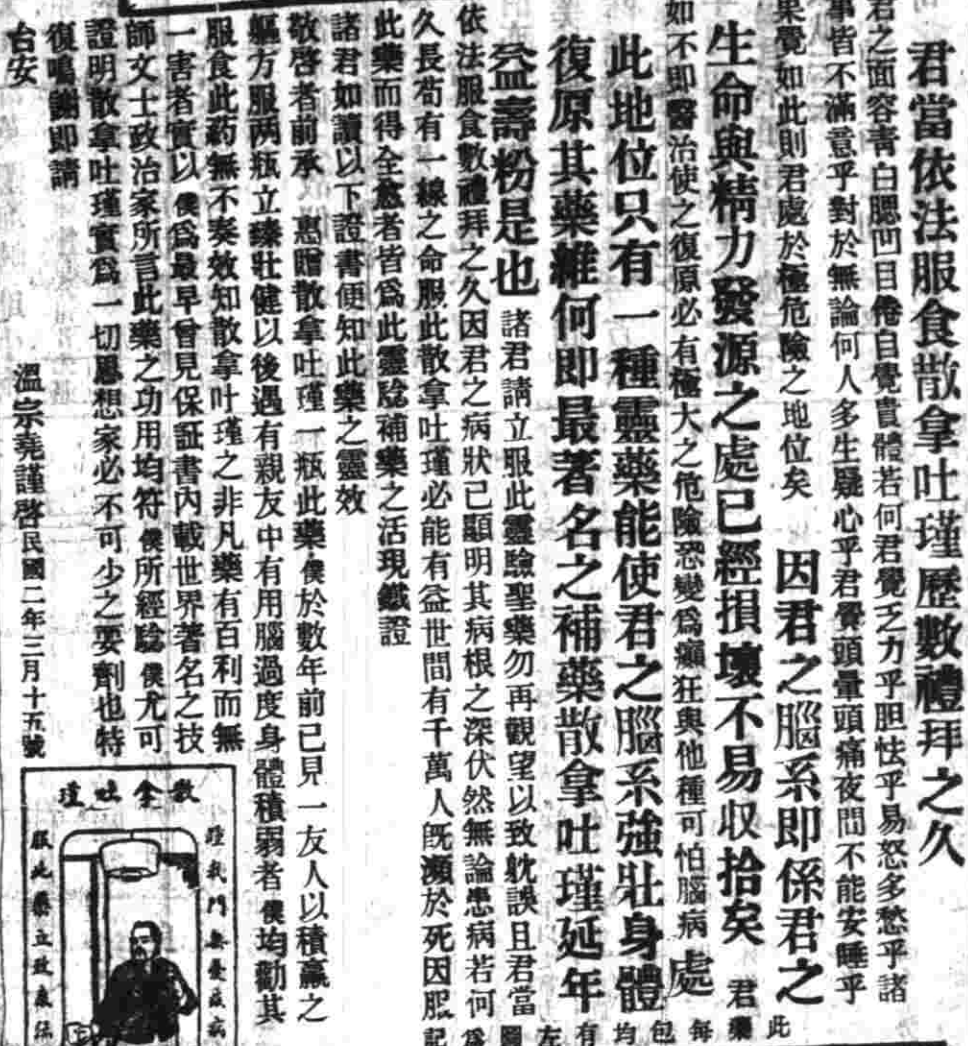 君當依法服食散拿吐瑾歷數禮拜之久
君之面容青白腮凹目倦自覺貴體若何君覺乏力乎胆怯乎易怒多愁乎諸
事皆不滿意乎對於無論何人多生疑心乎君覺頭暈頭痛夜間不能安睡乎
果覺如此則君處於極危險之地位矣 因君之腦系即係君之
生命與精力發源之處已經損壞不易収拾矣 君
如不即醫治使之復原必有極大之危險恐變爲癲狂與他種可怕腦病 處
此地位只有一種靈藥能使君之腦系強壯身體
復原其藥維何即最著名之補藥散拿吐瑾延年
益壽粉是也 諸君請立服此靈驗聖藥勿再觀望以致躭誤且君當
依法服食數禮拜之久因君之病狀已顯明其病根之深伏然無論患病若何
久長苟有一線之命服此散拿吐瑾必能有益世間有千萬人旣瀕於死因服
此藥而得全愈者皆爲此靈騐補藥之活現鐵證
諸君如讀以下證書便知此藥之靈效
敬啓者前承 惠贈散拿吐瑾一瓶此藥僕於數年前已見一友人以積羸之
軀方服两瓶立臻壯健以後遇有親友中有用腦過度身體積弱者僕均勸其
服食此葯無不奏效知散拿吐瑾之非凡藥有百利而無
一害者實以僕爲最早曾見保証書內載世界著名之技
師文士政治家所言此藥之功用均符僕所經騐僕尤可
證明散拿吐瑾實爲一切思想家必不可少之要劑也特
復鳴謝即請
台安
溫宗堯謹啓民國二年三月十五號
散拿吐瑾
服此藥立致康強
此
藥
每
包
均
有
左
圖
爲
記